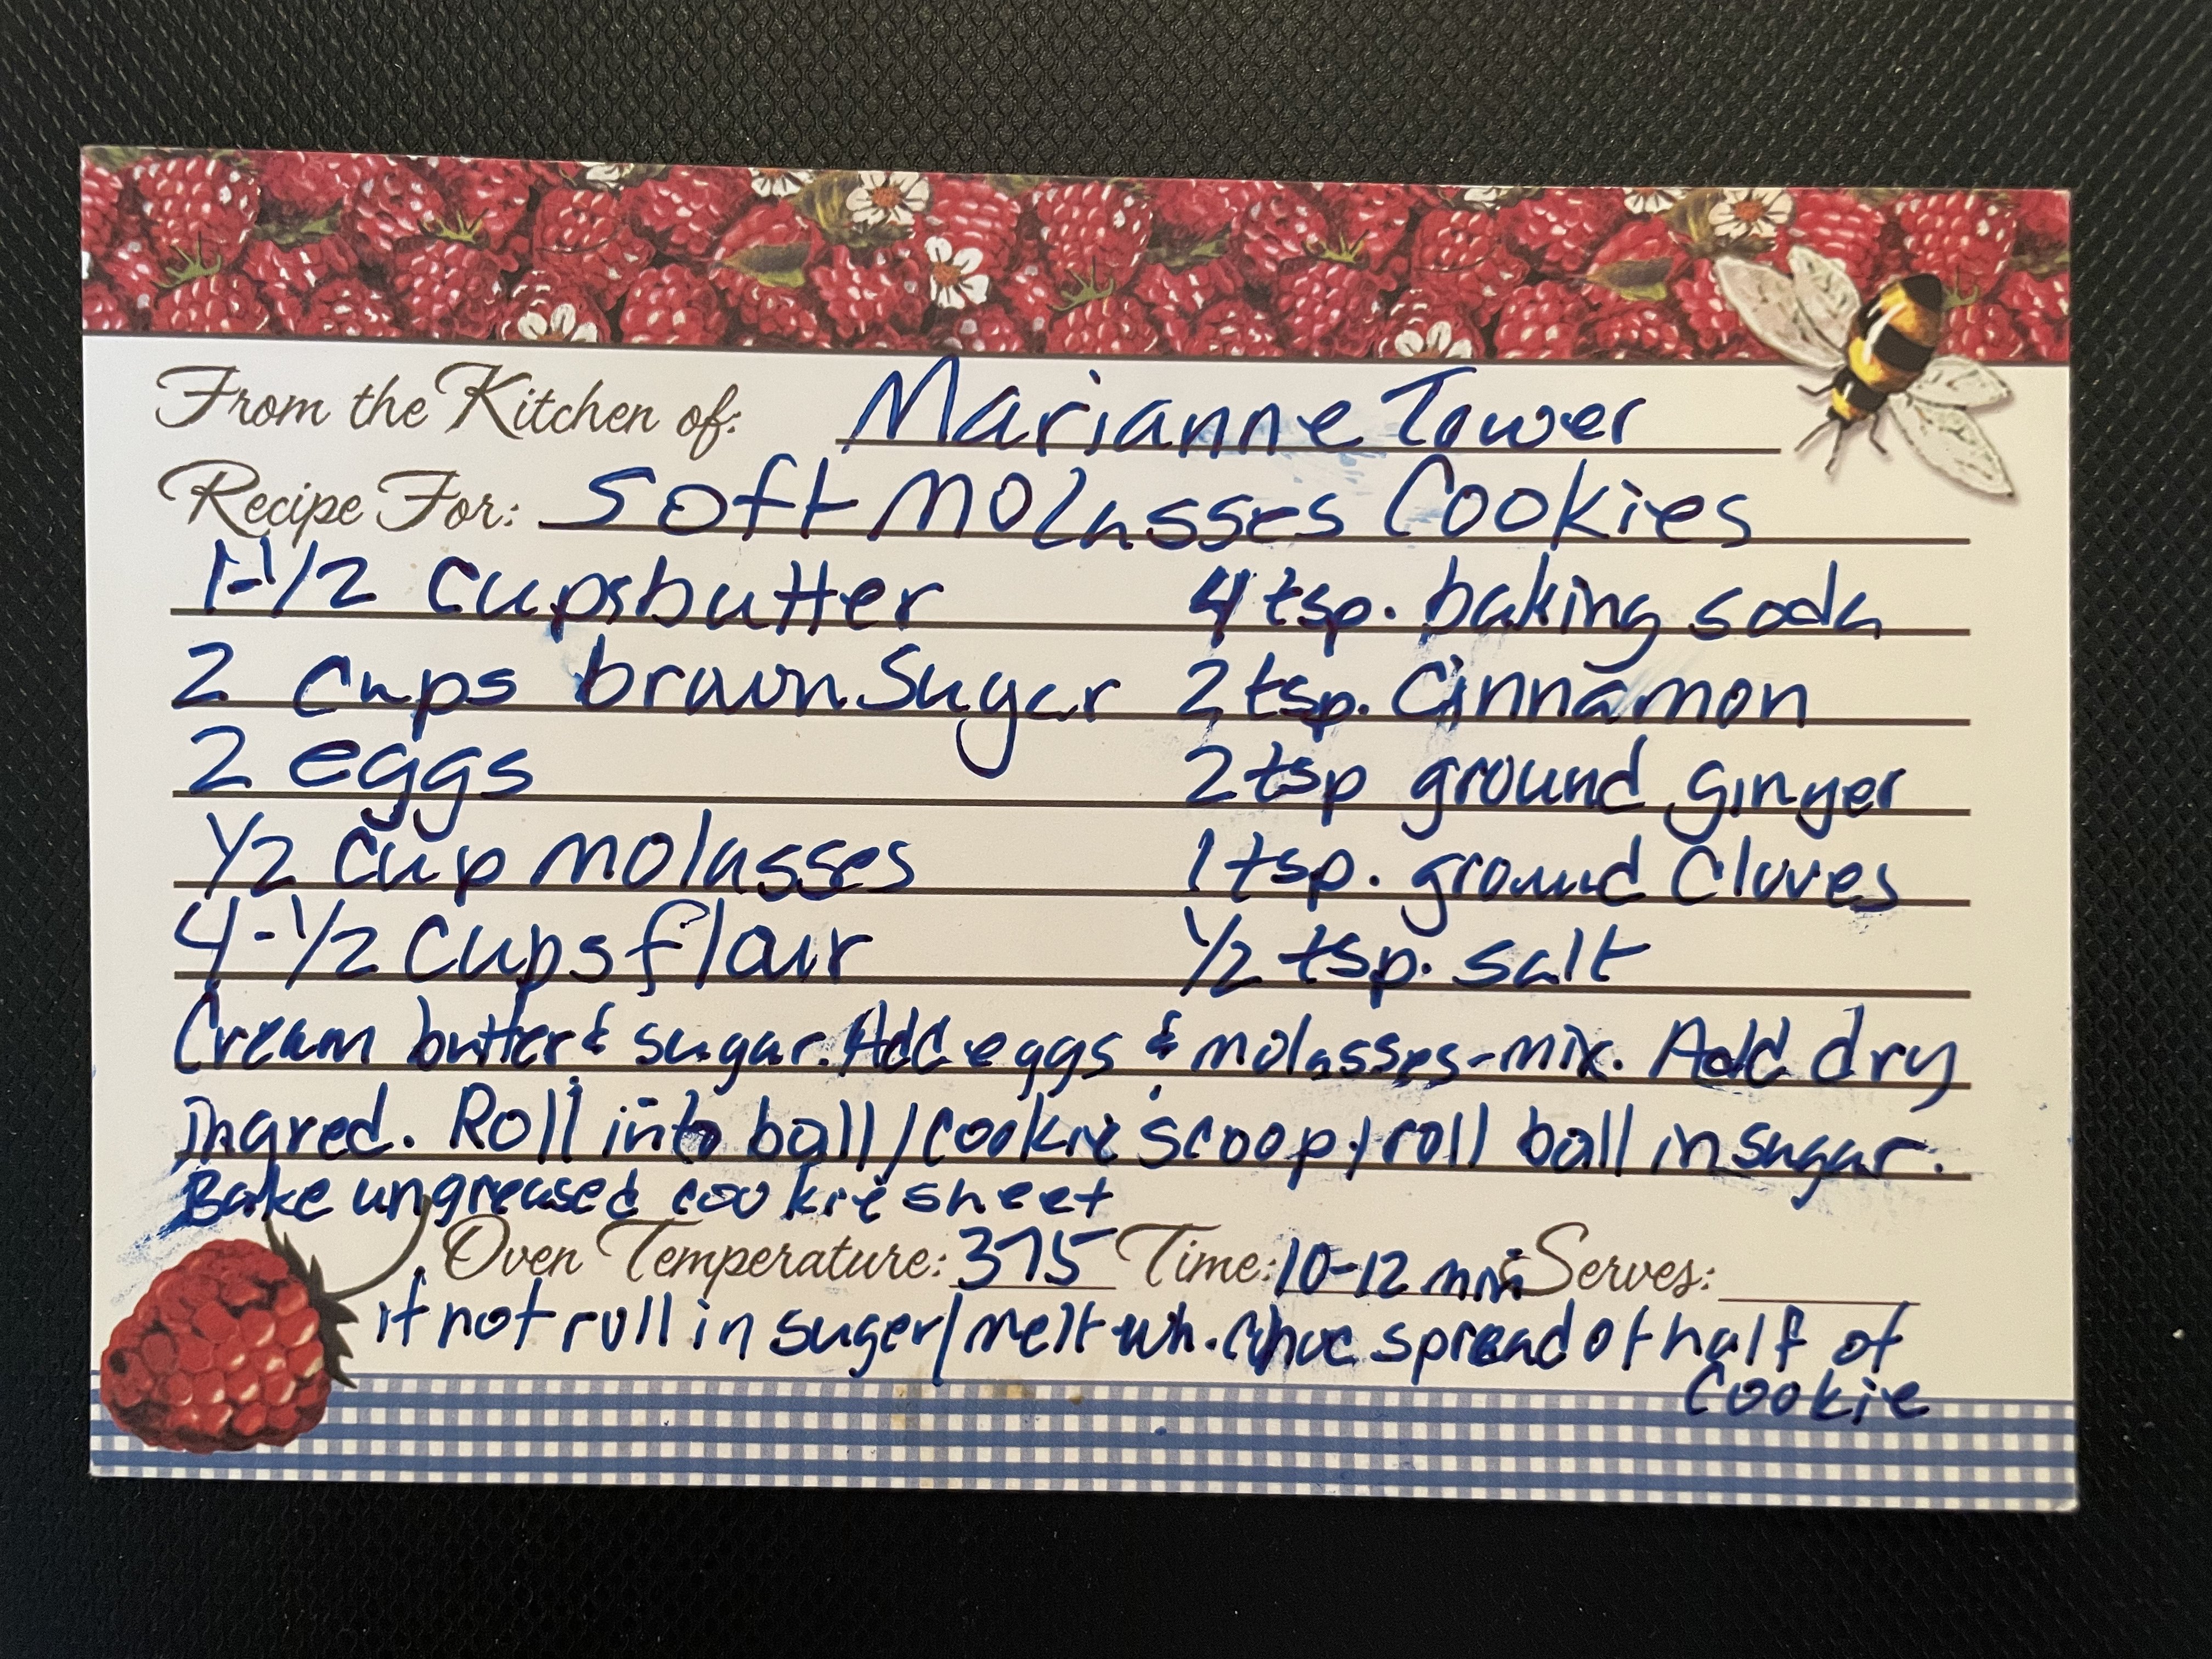 From the Kitchen of: Marianne Tower
Recipe For: Soft Molasses Cookies
1-1/2 cups butter 4 tsp. baking soda
2 cups brown Sugar 2 tsp. Cinnamon
2 eggs 2 tsp ground ginger
1/2 cup molasses 1 tsp. ground Cloves
4-1/2 cups flour 1/2 tsp. salt
Cream butter & sugar. Add eggs & molasses-mix. Add dry
ingred. Roll into ball/cookie scoop/roll ball in sugar.
Bake ungreased cookie sheet
Oven Temperature: 375 Time: 10-12 min Serves:
if not roll in suger/melt wh. choc spread of half of
Cookie